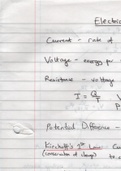 Electric
Current - rate of
Voltage - energy per
Resistance - voltage
I = Q/T V
Potential Difference -
Kirchoff's 1st Law:
(conservation of charge)